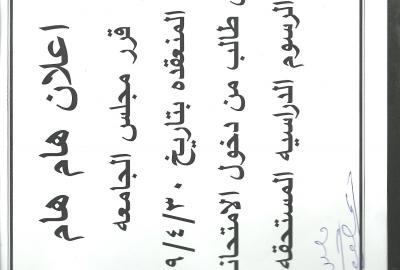 اعلان هام هام
قرر مجلس الجامعه
المنعقده بتاريخ ٩/٤/٣٠
طالب من دخول الامتحان
الرسوم الدراسيه المستحقه